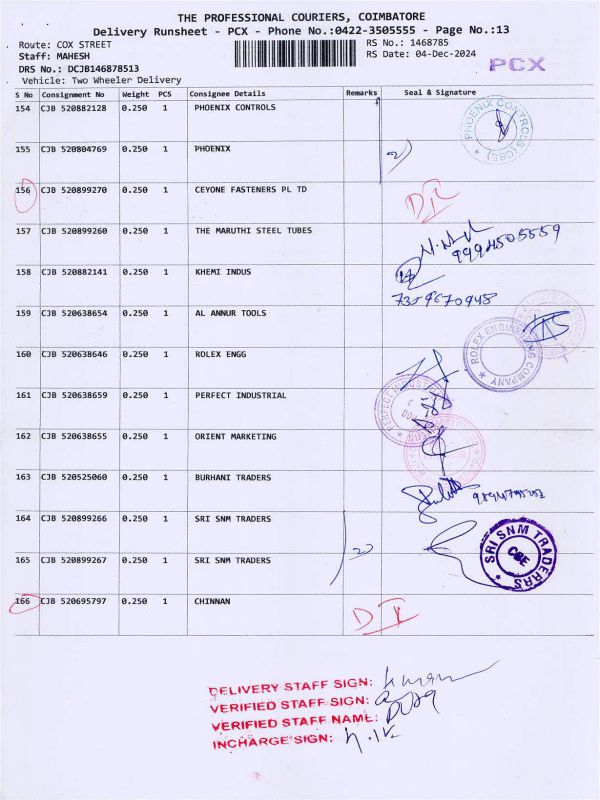 THE PROFESSIONAL COURIERS, COIMBATORE
Delivery Runsheet - PCX - Phone No.:0422-3505555 - Page No.:13
Route: COX STREET RS No.: 1468785
Staff: MAHESH RS Date: 04-Dec-2024
DRS No.: DCJB146878513 PCX
Vehicle: Two Wheeler Delivery
S No Consignment No Weight PCS Consignee Details Remarks Seal & Signature
154 CJB 520882128 0.250 1 PHOENIX CONTROLS PHOENIX CONTROLS (CBE)
155 CJB 520804769 0.250 1 PHOENIX 2)
156 CJB 520899270 0.250 1 CEYONE FASTENERS PL TD
157 CJB 520899260 0.250 1 THE MARUTHI STEEL TUBES 9994505559
158 CJB 520882141 0.250 1 KHEMI INDUS 7359670948
159 CJB 520638654 0.250 1 AL ANNUR TOOLS
160 CJB 520638646 0.250 1 ROLEX ENGG ROLEX ENGINEERING COMPANY
161 CJB 520638659 0.250 1 PERFECT INDUSTRIAL
162 CJB 520638655 0.250 1 ORIENT MARKETING
163 CJB 520525060 0.250 1 BURHANI TRADERS
164 CJB 520899266 0.250 1 SRI SNM TRADERS SRI SNM TRADERRS CBE
165 CJB 520899267 0.250 1 SRI SNM TRADERS
166 CJB 520695797 0.250 1 CHINNAN D I
DELIVERY STAFF SIGN:
VERIFIED STAFF SIGN:
VERIFIED STAFF NAME:
INCHARGE SIGN: